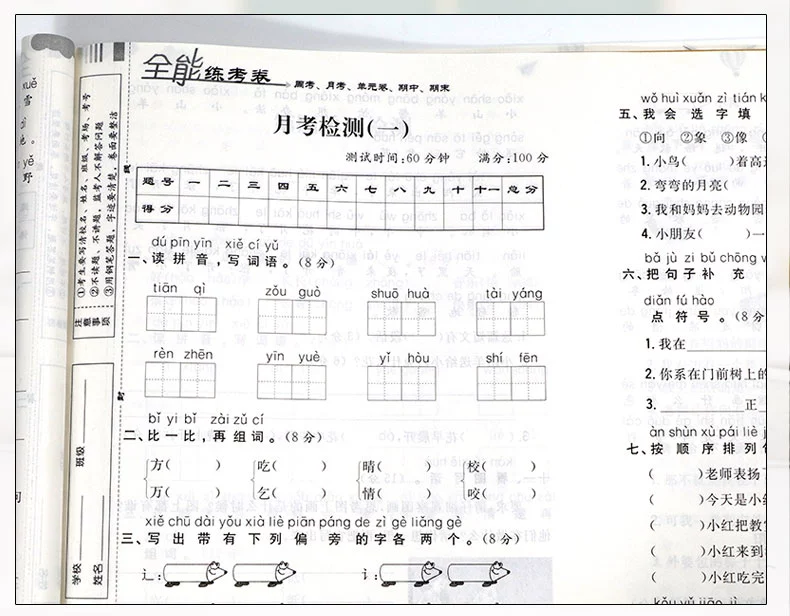 全能练考卷
周考、月考、单元卷、期中、期末
月考检测(一)
测试时间:60分钟 满分:100分
题号 一 二 三 四 五 六 七 八 九 十 十一 总分
得分
dú pīn yīn xiě cí yǔ
一、读拼音,写词语。(8分)
tiān qì zǒu guò shuō huà tài yáng
rèn zhēn yīn yuè yǐ hòu shí fēn
bǐ yi bǐ zài zǔ cí
二、比一比,再组词。(8分)
方( ) 吃( ) 晴( ) 校( )
万( ) 乞( ) 情( ) 咬( )
xiě chū dài yǒu xià liè piān páng de zì gè liǎng gè
三、写出带有下列偏旁的字各两个。(8分)
辶: 讠:
wǒ huì xuǎn zì tián k
五、我会选字填
①向 ②象 ③像
1.小鸟( )着高
2.弯弯的月亮(
3.我和妈妈去动物园
4.小朋友( )一
bǎ jù zi bǔ chōng
六、把句子补充
diǎn fú hào
点符号。(8分
1.我在
2.你系在门前树上的
3. 正
àn shùn xù pái liè
七、按顺序排列
( )老师表扬
( )今天是小
( )小红把教
( )小红来到
( )小红吃完
①考生要写清校名、姓名、班级、考场、考号
②不读题、不讲题,监考人不解答问题
③用钢笔答题,字迹要清楚,卷面要整洁
注意事项
学校
班级
姓名
封
xuě
雪
yě
野